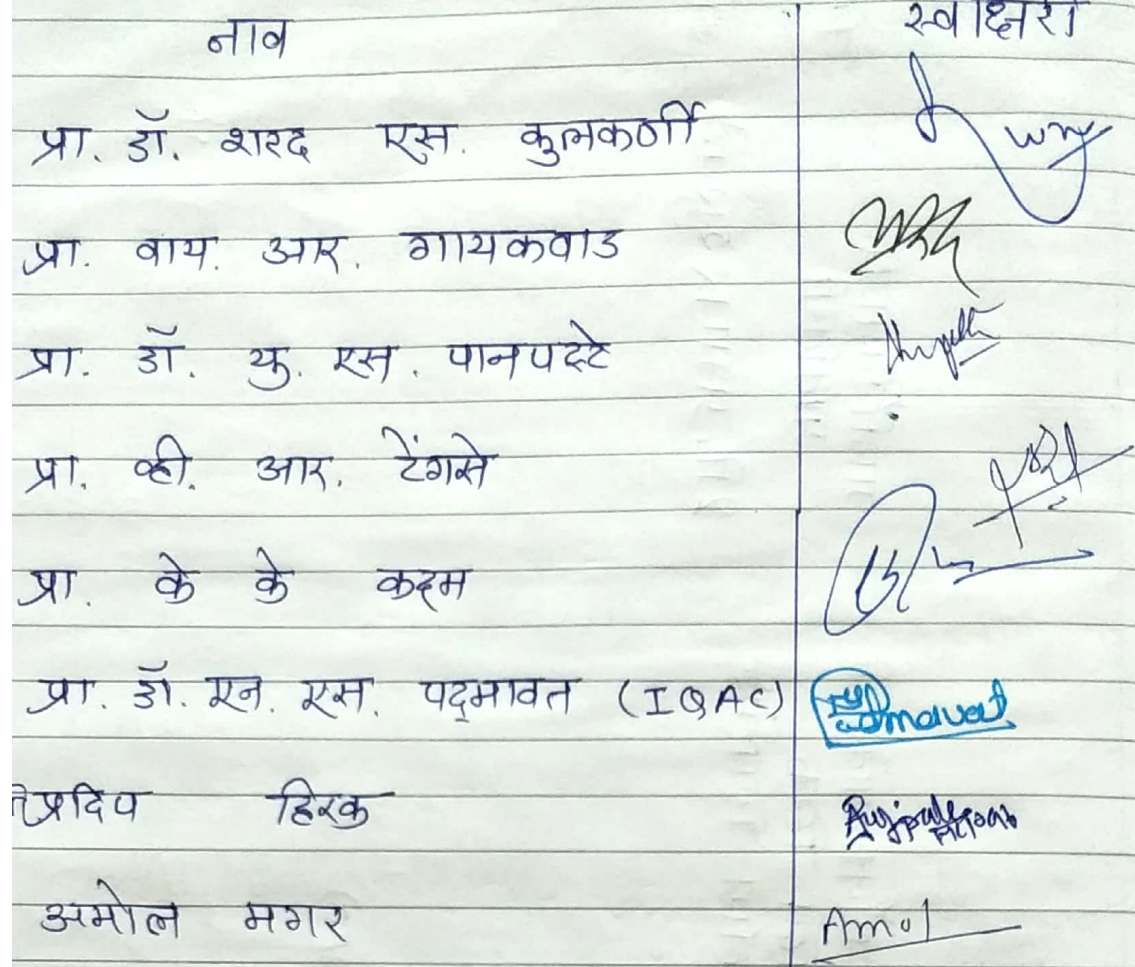 नाव स्वाक्षरी
प्रा. डॉ. शरद एस. कुलकर्णी
प्रा. वाय. आर. गायकवाड
प्रा. डॉ. यु. एस. पानपट्टे
प्रा. व्ही. आर. टेंगसे
प्रा. के के कदम
प्रा. डॉ. एन. एस. पद्मावत (IQAC)
प्रदिप हिरकु
अमोल मगर Amol